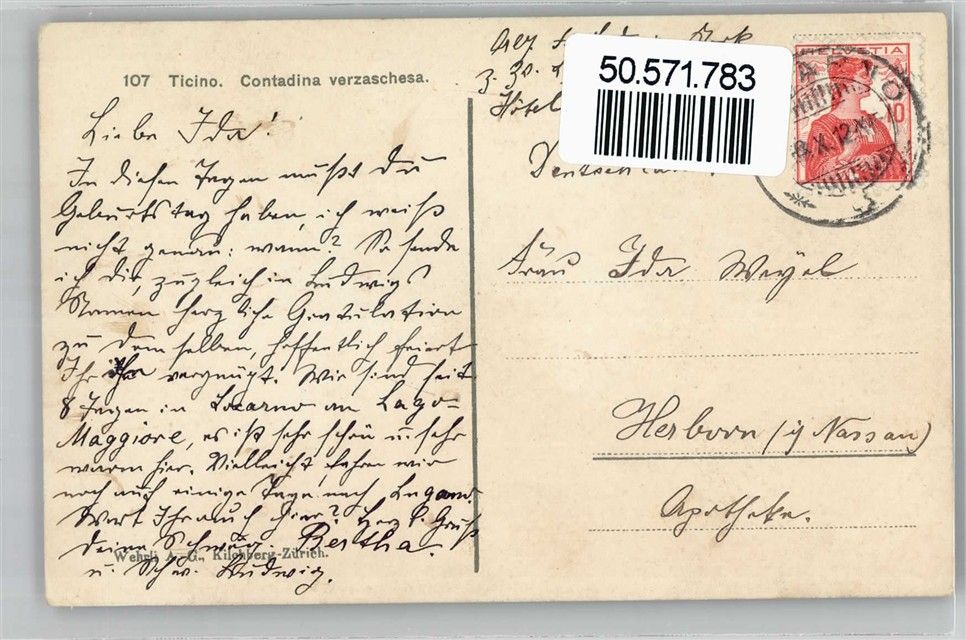 107 Ticino. Contadina verzaschesa.
Liebe Ida!
In diesen Tagen mußt Du
Geburtstag haben, ich weiß
nicht genau: wann? So sende
ich dir, zugleich in Ludwigs
Namen herzliche Gratulation
zu demselben, hoffentlich feiert
Ihr ihn vergnügt. Wir sind seit
8 Tagen in Locarno am Lago-
Maggiore, es ist sehr schön u. sehr
warm hier. Vielleicht fahren wir
noch auch einige Tage nach Lugano.
Wart Ihr auch hier? Herzl. Gruß
Deine Schwäg. Bertha.
u. Schw. Ludwig.
Wehrli A.-G., Kilchberg-Zürich.
z. Zt.
Hôtel
Deutschland.
50.571.783
HELVETIA
10
X.12
Frau Ida Weyel
Herborn (i/ Nassau)
Apotheke.